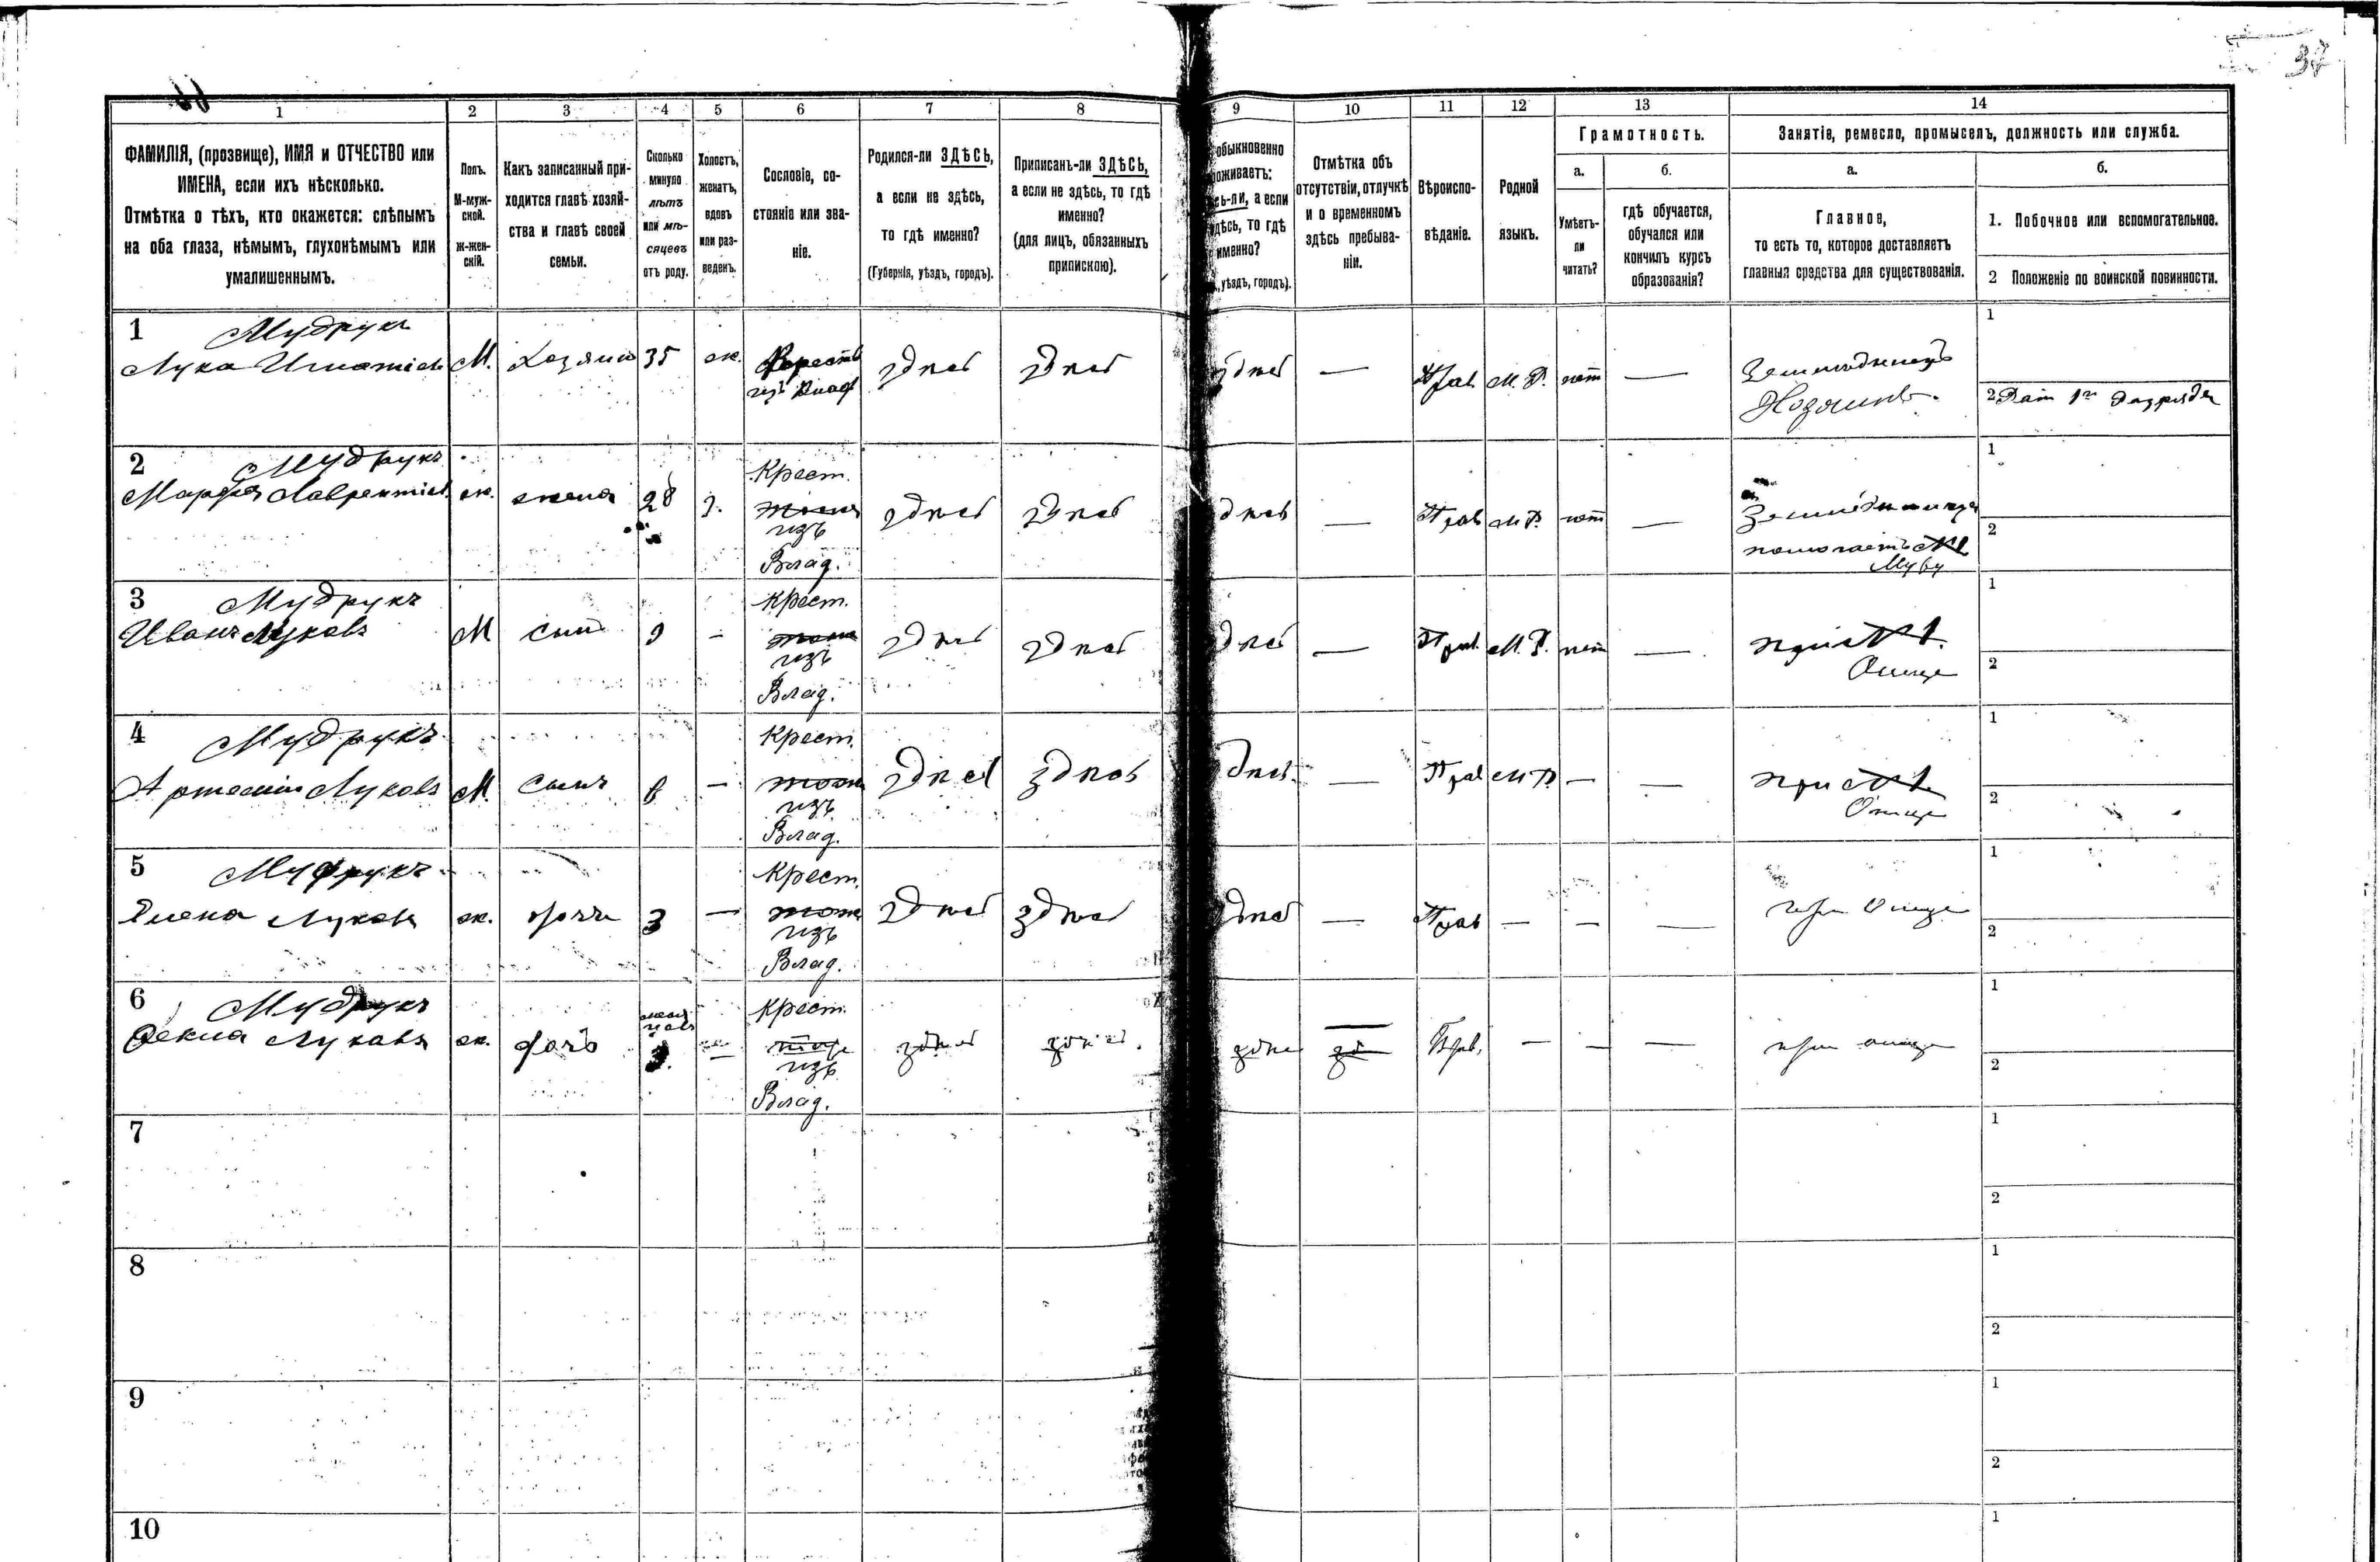 37
1 2 3 4 5 6 7 8 9 10 11 12 13 14
ФАМИЛІЯ, (прозвище), ИМЯ и ОТЧЕСТВО или
ИМЕНА, если ихъ нѣсколько.
Отмѣтка о тѣхъ, кто окажется: слѣпымъ
на оба глаза, нѣмымъ, глухонѣмымъ или
умалишеннымъ.
Полъ.
М-муж-
ской.
ж-жен-
скій.
Какъ записанный при-
ходится главѣ хозяй-
ства и главѣ своей
семьи.
Сколько
минуло
лѣтъ
или мѣ-
сяцевъ
отъ роду.
Холостъ,
женатъ,
вдовъ
или раз-
веденъ.
Сословіе, со-
стояніе или зва-
ніе.
Родился-ли ЗДѢСЬ,
а если не здѣсь,
то гдѣ именно?
(Губернія, уѣздъ, городъ).
Приписанъ-ли ЗДѢСЬ,
а если не здѣсь, то гдѣ
именно?
(для лицъ, обязанныхъ
припискою).
обыкновенно
оживаетъ:
сь-ли, а если
дѣсь, то гдѣ
именно?
, уѣздъ, городъ).
Отмѣтка объ
отсутствіи, отлучкѣ
и о временномъ
здѣсь пребыва-
ніи.
Вѣроиспо-
вѣданіе.
Родной
языкъ.
Грамотность.
а.
Умѣетъ-
ли
читать?
б.
гдѣ обучается,
обучался или
кончилъ курсъ
образованія?
Занятіе, ремесло, промыселъ, должность или служба.
а.
Главное,
то есть то, которое доставляетъ
главныя средства для существованія.
б.
1. Побочное или вспомогательное.
2 Положеніе по воинской повинности.
1 Мудрукъ
Лука Игнатіевъ М. Хозяинъ 35 ж. Крест
изъ Влад здѣсь здѣсь здѣсь — Прав М.Р. нет — Земледѣлецъ
Хозяинъ. 1
2 Рат 1го разряда
2 Мудрукъ
Марфа Лаврентіев. ж. жена 28 з. Крест.
изъ
Влад. здѣсь здѣсь здѣсь — Прав М.Р. нет —
помогаетъ №1
Мужу 1
2
3 Мудрукъ
Иванъ Луковъ М сынъ 9 — Крест.
тоже
изъ
Влад. здѣсь здѣсь здѣсь — Прав. М.Р. нет — при №1.
Отце 1
2
4 Мудрукъ
Артемій Луковъ М. сынъ 6 — Крест.
тоже
изъ
Влад. здѣсь здѣсь здѣсь — Прав М.Р. — — при №1.
Отце 1
2
5 Мудрукъ
Елена Лукова ж. дочь 3 — Крест.
тоже
изъ
Влад. здѣсь здѣсь здѣсь — Прав — — — при Отце 1
2
6 Мудрукъ
Фекла Лукова ж. дочь — Крест.
тоже
изъ
Влад. здѣсь здѣсь здѣсь — Прав. — — — при отце 1
2
7 1
2
8 1
2
9 1
2
10 1